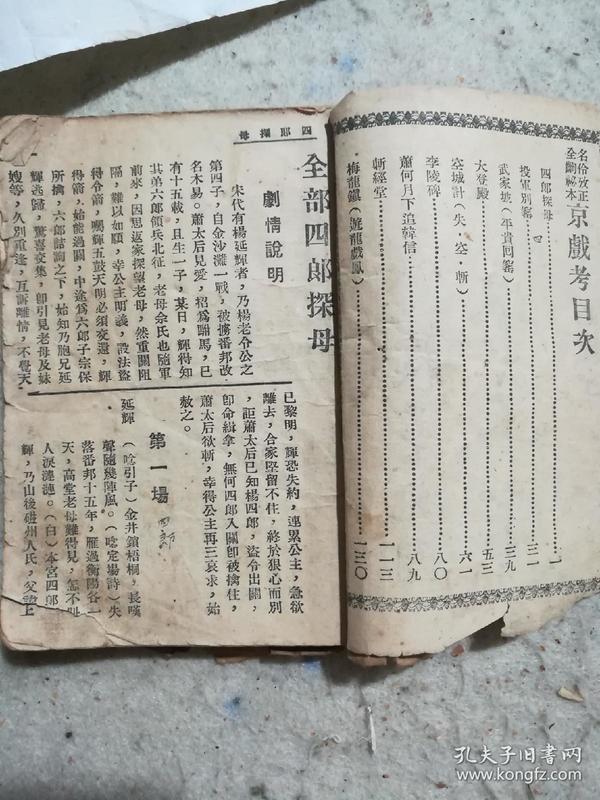 名伶攷正
全齣秘本
京戲考目次
四郎探母……一
投軍別窰……三一
武家坡(平貴回窰)……三九
大登殿……五三
空城計(失,空,斬)……六一
李陵碑……八〇
蕭何月下追韓信……八九
斬經堂……一一三
梅龍鎮(遊龍戲鳳)……一三〇
四郎探母
全部四郎探母
劇情說明
宋代有楊延輝者,乃楊老令公之
第四子,自金沙灘一戰,被擄番邦改
名木易。蕭太后見愛,招爲駙馬,已
有十五載,且生一子,某日,輝得知
其弟六郎領兵北征,老母佘氏也隨軍
前來,因思返家探望老母,然重關阻
隔,難以如願,幸公主明義,設法盜
得令箭,囑輝五鼓天明必須交還,輝
得箭,始能過關,中途爲六郎子宗保
所擒,六郎詰詢之下,始知乃胞兄延
輝逃歸,驚喜交集,卽引見老母及妹
嫂等,久別重逢,互訴離情,不覺天
已黎明,輝恐失約,連累公主,急欲
離去,合家堅留不住,終於狠心而別
,詎蕭太后已知楊四郎,盜令出關,
卽命緝拿,無何四郎入關卽被擒住,
蕭太后欲斬,幸得公主再三哀求,始
赦之。
第一場
延輝
(唸引子)金井鎖梧桐,長嘆
聲隨幾陣風。(唸定場詩)失
落番邦十五年,雁過衡陽各一
天,高堂老母難得見,怎不
人淚漣漣。(白)本宮四郎
輝,乃山後磁州人氏,父諱上
孔夫子旧书网
www.kongfz.com